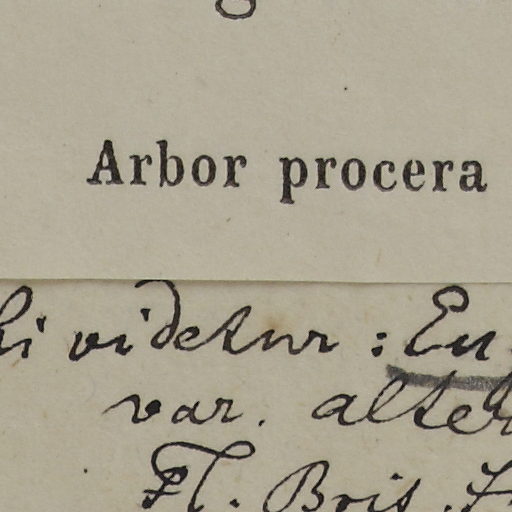 Arbor procera
videtur : Eu
var. alter
Fl. Bris.